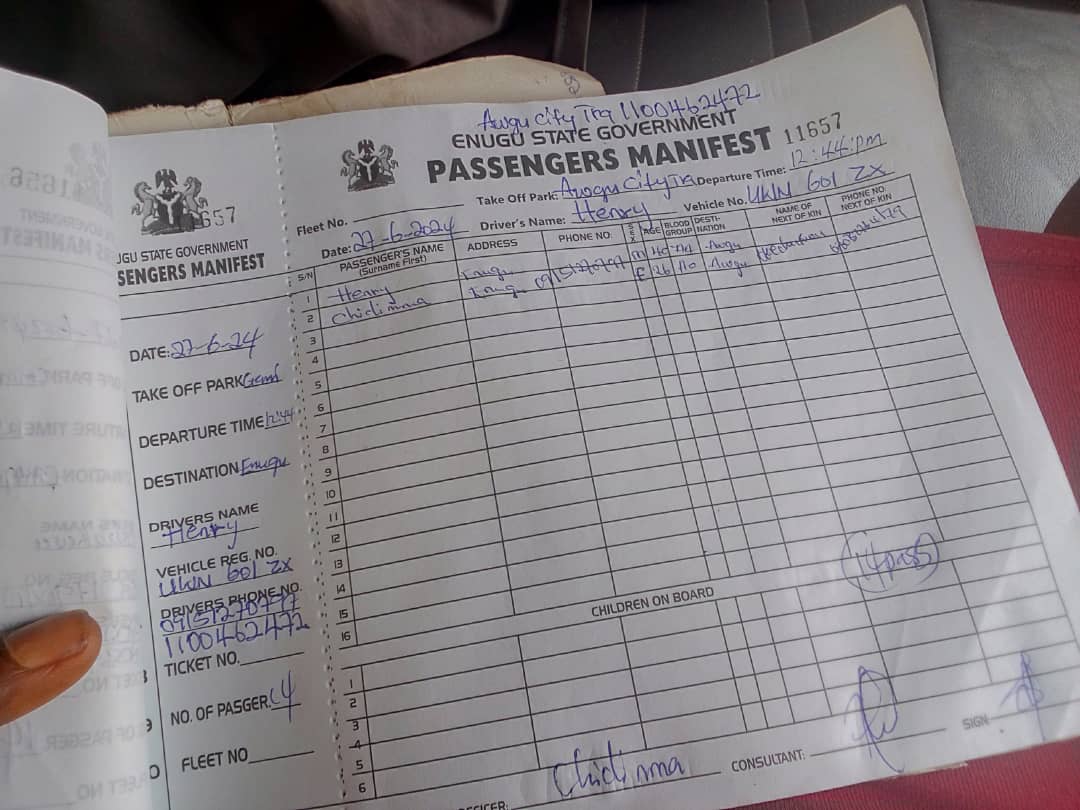 11656
657
UGU STATE GOVERNMENT
SENGERS MANIFEST
DATE: 27-6-24
TAKE OFF PARK
DEPARTURE TIME 12:44
DESTINATION Enugu
DRIVERS NAME
Henry
VEHICLE REG. NO.
UWN 601 ZX
DRIVERS PHONE NO.
09151270797
1100462472
TICKET NO.
NO. OF PASGER. 14
FLEET NO
Awgu City Tra 1100462472
ENUGU STATE GOVERNMENT
PASSENGERS MANIFEST 11657
Fleet No. Take Off Park: Awgu City Tra Departure Time: 12:44:pm
Date: 27-6-2024 Driver's Name: Henry Vehicle No. UWN 601 ZX
S/N PASSENGER'S NAME (Surname First) ADDRESS PHONE NO. SEX AGE BLOOD GROUP DESTI-NATION NAME OF NEXT OF KIN PHONE NO. NEXT OF KIN
1 Henry Enugu 09151270797 m 40 Awgu
2 Chidimma Enugu F 26 Awgu
3
4
5
6
7
8
9
10
11
12
13
14
15
16
14 pass
CHILDREN ON BOARD
1
2
3
4
5
6
FICER: Chidimma CONSULTANT: SIGN